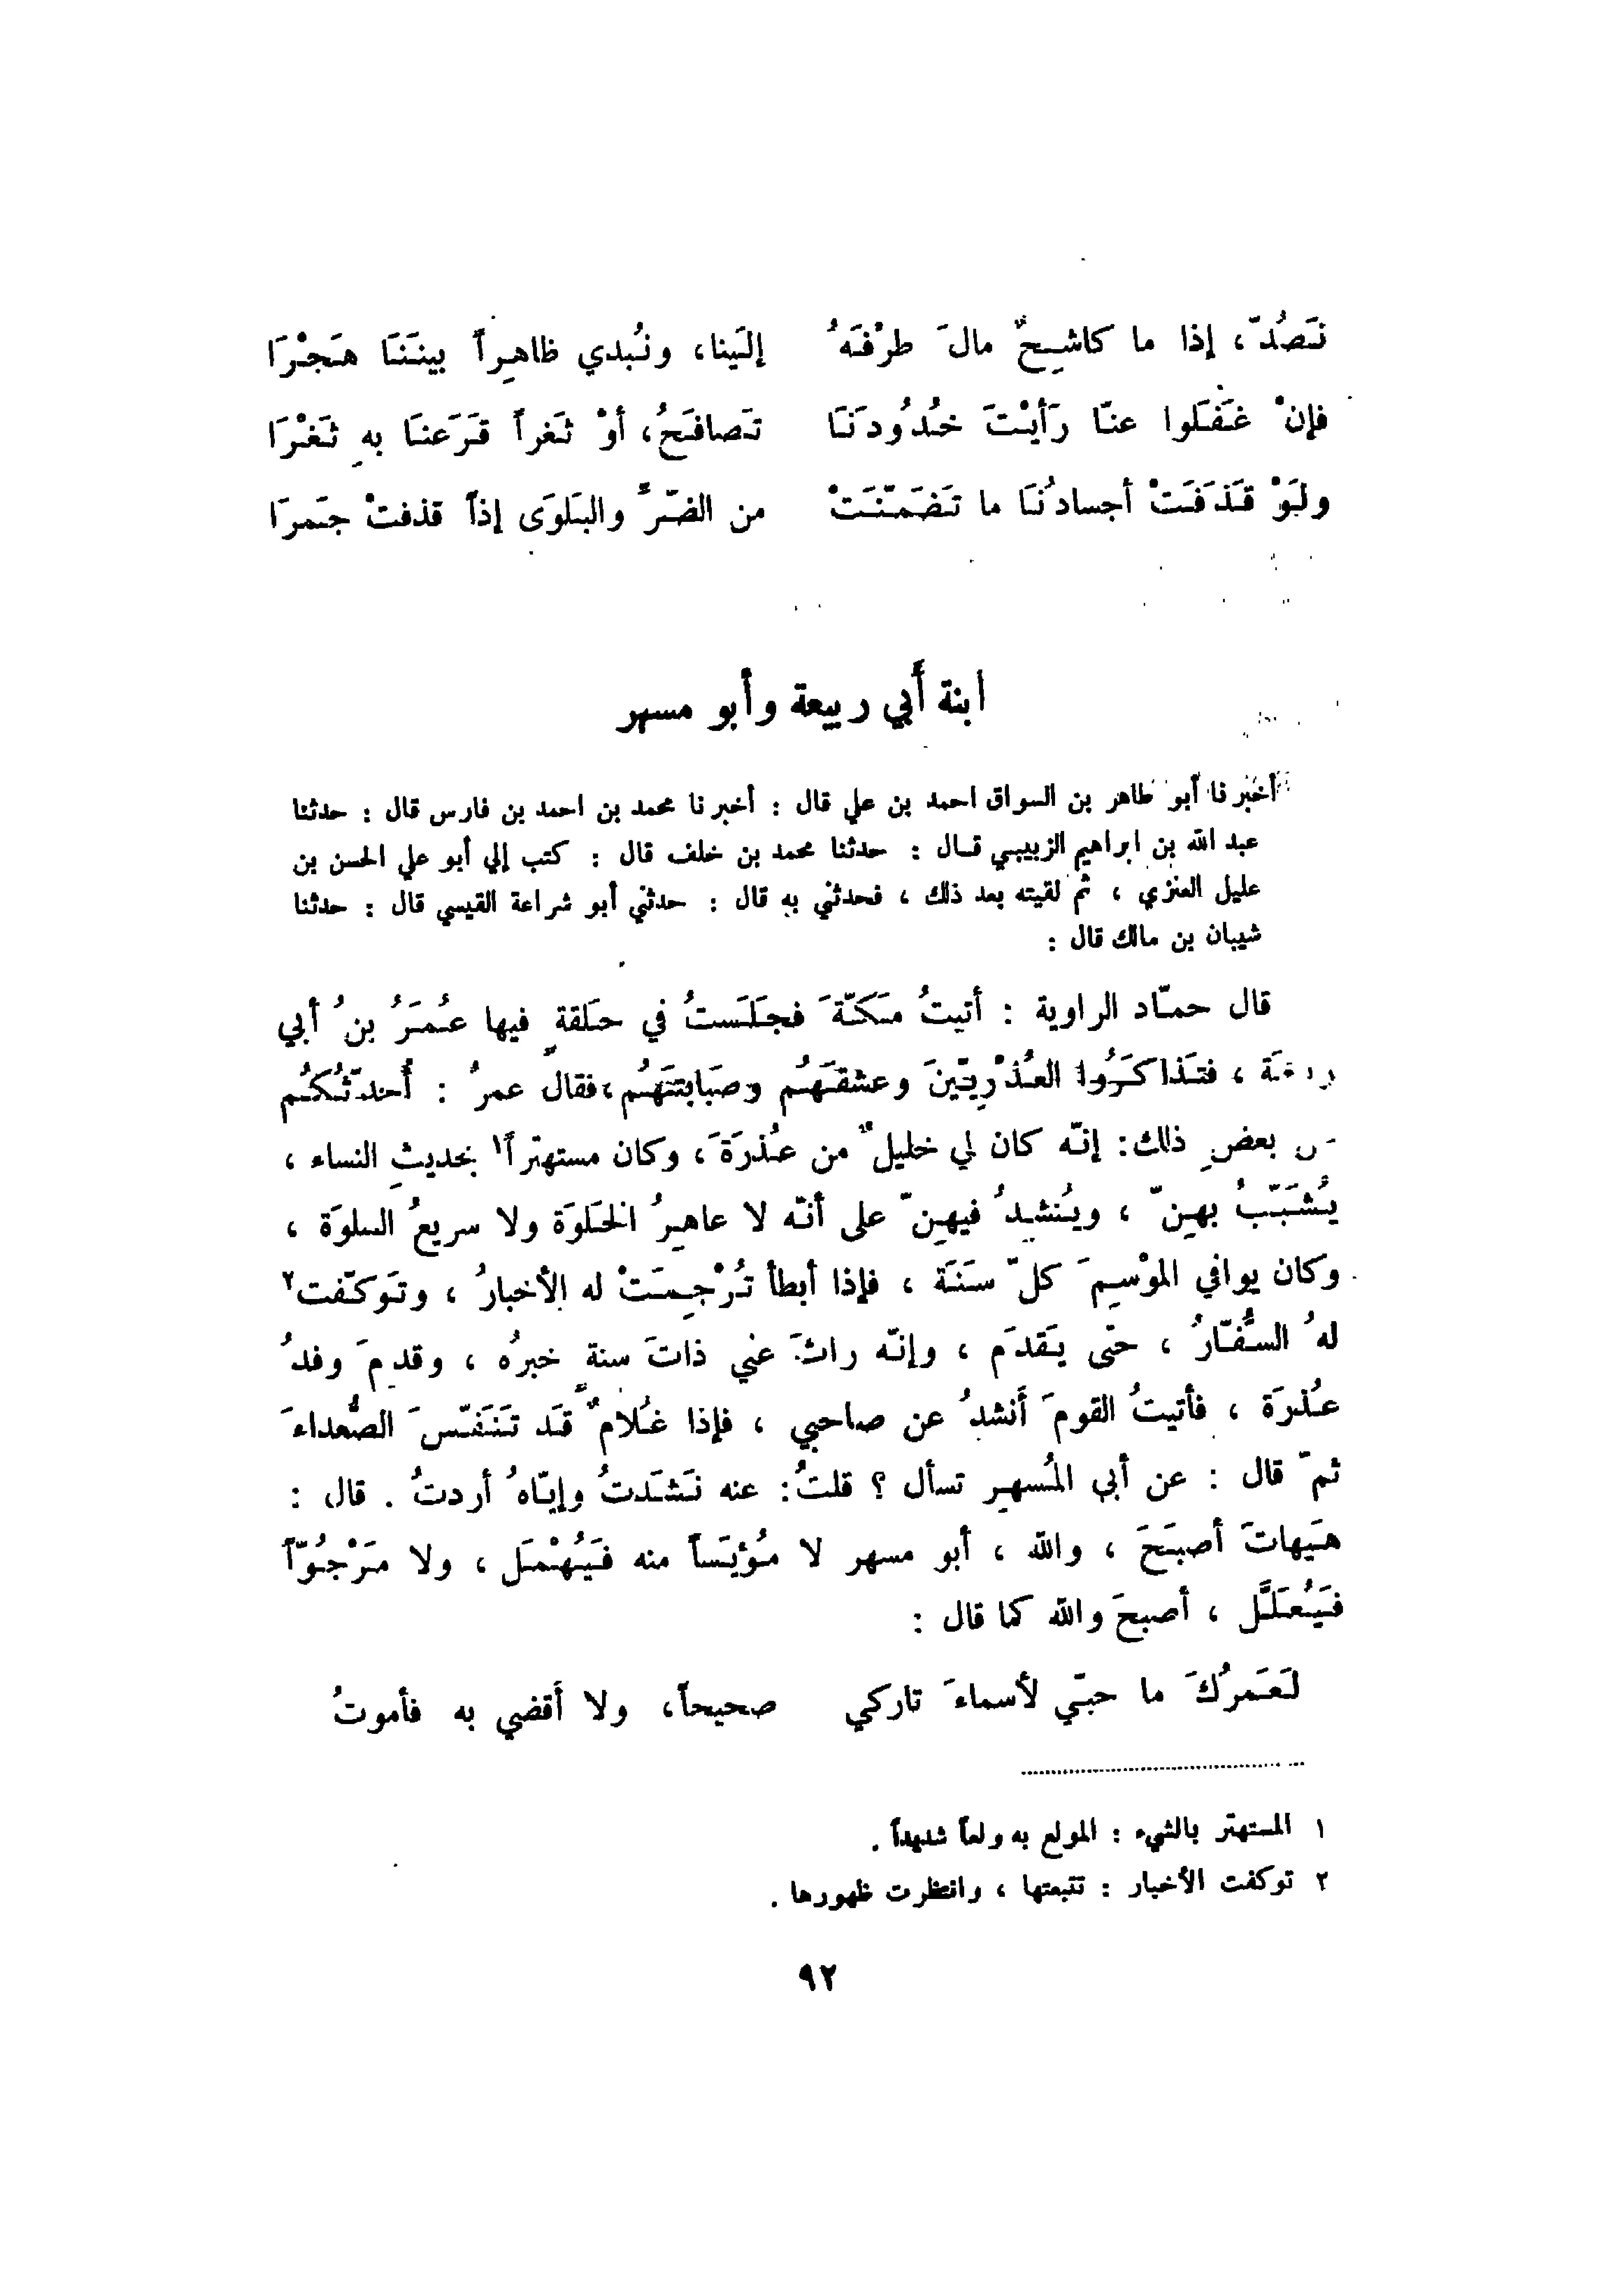 نَصُدّ، إذا ما كاشِحٌ مالَ طرْفَهُ إلَينا، ونُبدي ظاهِراً بينَنَا هَجْرَا
فإنْ غَفَلوا عنّا رَأيْتَ خُدُودَنَا تَصافَحُ، أوْ ثَغراً قَرَعنَا بهِ ثَغْرَا
ولَوْ قَذَفَتْ أجسادُنَا ما تَضَمّنَتْ من الضّرّ والبَلوَى إذاً قذفتْ جَمرَا
ابنة أبي ربيعة وأبو مسهر
أخبرنا أبو طاهر بن السواق احمد بن علي قال : أخبرنا محمد بن احمد بن فارس قال : حدثنا
عبد الله بن ابراهيم الزبيبي قال : حدثنا محمد بن خلف قال : كتب إلي أبو علي الحسن بن
عليل العنزي ، ثم لقيته بعد ذلك ، فحدثني به قال : حدثني أبو شراعة القيسي قال : حدثنا
شيبان بن مالك قال :
قال حمّاد الراوية : أتيتُ مَكّةَ فجَلَستُ في حَلقةٍ فيها عُمَرُ بنُ أبي
، فتَذاكَرُوا العُذْرِيّينَ وعشقَهُم وصَبَابتَهُم، فقال عمرُ : أُحدّثُكُم
بعضِ ذلك: إنّه كان لي خليلٌ من عُذرَةَ، وكان مستهتراً١ بحديثِ النساء ،
يُشَبّبُ بهِنّ ، ويُنشِدُ فيهِنّ على أنّه لا عاهِرُ الخَلوَة ولا سريعُ السلوَة ،
وكان يوافي الموْسِمَ كلّ سَنَة ، فإذا أبطأ تُرْجِمَتْ له الأخبارُ ، وتَوكّفت٢
لهُ السُّفّارُ ، حتّى يَقدَم ، وإنّه راثَ عني ذاتَ سنةٍ خبرُه ، وقدِمَ وفدُ
عُذرَة ، فأتيتُ القومَ أنشدُ عن صاحبي ، فإذا غُلامٌ قَد تَنَفّسَ الصُّعداءَ
ثمّ قال : عن أبي المُسهِرِ تسأل ؟ قلتُ: عنه نَشَدتُ وإيّاهُ أردتُ . قال :
هَيهاتَ أصبَحَ ، والله ، أبو مسهر لا مُؤيَساً منه فَيُهْمَل ، ولا مَرْجُوّاً
فَيُعَلَّل ، أصبحَ والله كما قال :
لَعَمرُكَ ما حبّي لأسماءَ تاركي صحيحاً، ولا أقضي به فأموتُ
١ المستهتر بالشيء : المولع به ولعاً شديداً .
٢ توكفت الأخبار : تتبعتها ، وانتظرت ظهورها .
٩٢